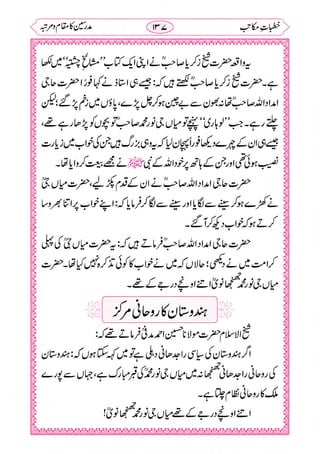 خطباتِ مکاتب
۱۳۷
مدرسین کا مقام و مرتبہ
یہ واقعہ حضرت شیخ زکریا صاحبؒ نے اپنی ایک کتاب ”مشائخِ چشتیہ“ میں لکھا
ہے۔ حضرت شیخ زکریا صاحبؒ لکھتے ہیں کہ: جیسے ہی استاذ نے کہا فوراً حضرت حاجی
امداد اللہ صاحبؒ تھانہ بھون سے بے چین ہو کر چل پڑے، پاؤں میں زخم پڑ گئے؛ لیکن
چلتے رہے۔ جب ”لوہاری“ پہنچے تو میاں جی نور محمد صاحبؒ تو بچوں کو پڑھا رہے تھے،
جیسے ہی ان کے چہرے کو دیکھا فوراً پہچان لیا کہ یہ وہی بزرگ ہیں جن کی خواب میں زیارت
نصیب ہوئی تھی اور جن کے ہاتھ پر خود اللہ کے نبی ﷺ نے مجھے بیعت کروایا تھا۔
حضرت حاجی امداد اللہ صاحبؒ نے ان کے قدم پکڑ لیے، حضرت میاں جیؒ
نے کھڑے ہو کر سینے سے لگایا اور سینے سے لگا کر فرمایا کہ: اپنے خواب پر اتنا سارا بھروسا
کرتے ہو کہ خواب دیکھ کر آ گئے۔
حضرت حاجی امداد اللہ صاحبؒ فرماتے ہیں کہ: یہ حضرت میاں جیؒ کی ایک پہلی
کرامت میں نے دیکھی؛ حالاں کہ میں نے خواب کا کوئی تذکرہ نہیں کیا تھا۔ حضرت
میاں جی نور محمد جھنجھانویؒ اتنے اونچے درجے کے تھے۔
ہندوستان کا روحانی مرکز
شیخ الاسلام حضرت مولانا حسین احمد مدنیؒ فرماتے تھے کہ:
اگر ہندوستان کی سیاسی راجدھانی دہلی ہے تو میں کہہ سکتا ہوں کہ: ہندوستان
کی روحانی راجدھانی جھنجھانہ میں میاں جی نور محمدؒ کی مبارک قبر ہے، جہاں سے پورے
ملک کا روحانی نظام چلتا ہے۔
اتنے اونچے درجے کے تھے میاں جی نور محمد جھنجھانویؒ!